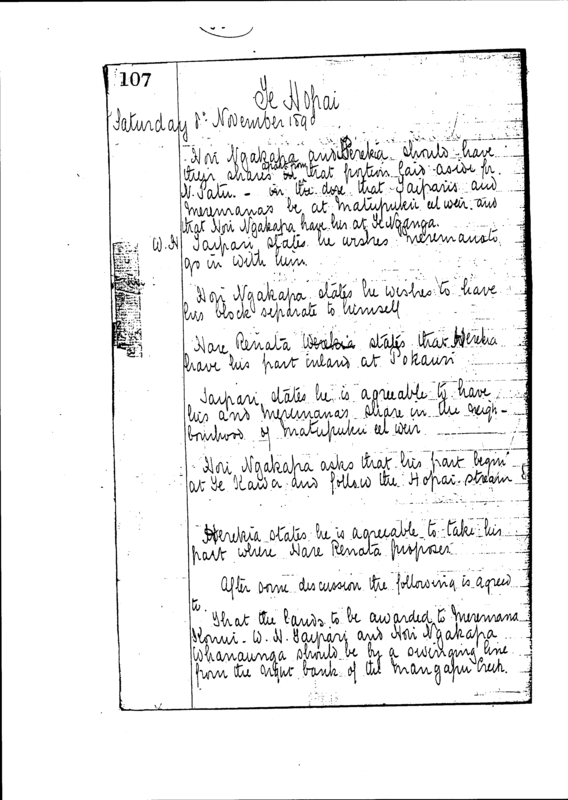 107
Te Hopai
Saturday 8th November 1890
Hori Ngakapa and Herekia should have
their shares apart from that portion laid aside for
N. Patu. - in the that Taipari's and
Meremana's be at Matupukii eel weir and
that Hori Ngakapa have his at Te Nganga.
W. H Taipari states he wishes Meremana to
go in with him
Hori Ngakapa states he wishes to have
his block separate to himself
Hare Renata states that Herekia
have his part inland at Pokauri
Taipari states he is agreeable to have
his and Meremana's share in the neigh-
bourhood of Matupukii eel weir
Hori Ngakapa asks that his part begin
at Te Kawa and follow the Hopai stream
Herekia states he is agreeable to take his
part where Hare Renata proposes
After some discussion the following is agreed
to.
That the lands to be awarded to Meremana
Konui - W. H. Taipari and Hori Ngakapa
Whanaunga should be by a swinging line
from the right bank of the Mangapu Creek.